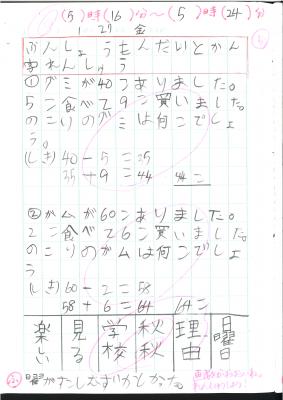 (5)時(16)分〜(5)時(24)分
1 27 金
ぶんしょうもんだいとかん
字れんしゅう
①グミが40こありました。
5こ食べて9こ買いました。
のこりのグミは何こでしょ
う。
(しき) 40-5=35
35+9=44 44こ
②ガムが60こありました。
2こ食べて6こ買いました。
のこりのガムは何こでしょ
う
(しき) 60-2=58
58+6=64 64こ
日曜日
理由
秋秋
学校
見る
楽しい
曜がすこしむずかしかった